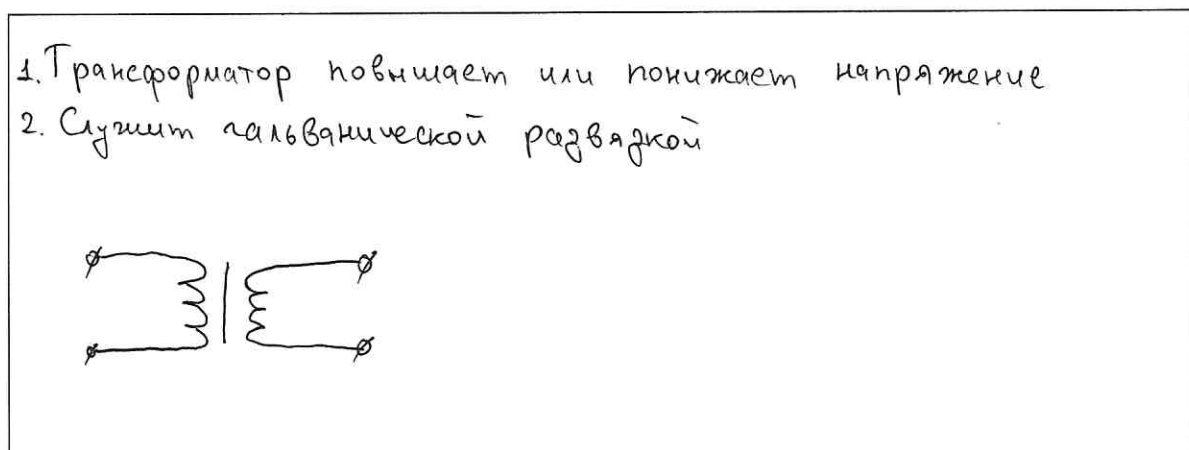 1. Трансформатор повышает или понижает напряжение
2. Служит гальванической развязкой